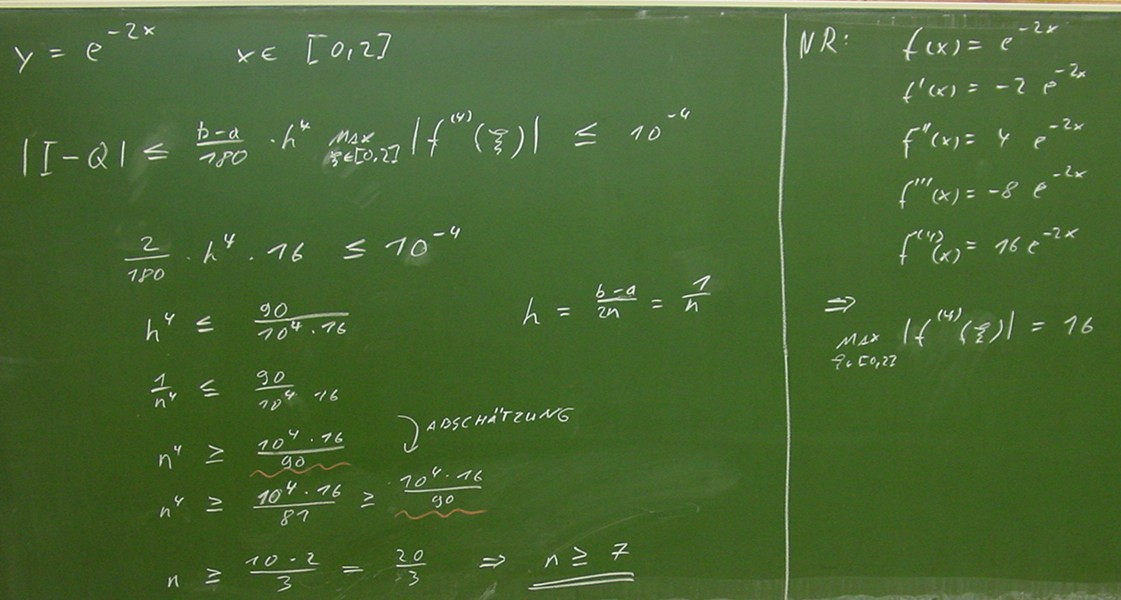 y = e^{-2x} x ∈ [0,2]
|I-Q| ≤ \frac{b-a}{180} · h^4 max_{ξ∈[0,2]} |f^{(4)}(ξ)| ≤ 10^{-4}
\frac{2}{180} · h^4 · 16 ≤ 10^{-4}
h^4 ≤ \frac{90}{10^4 · 16}
h = \frac{b-a}{2n} = \frac{1}{n}
\frac{1}{n^4} ≤ \frac{90}{10^4 · 16}
n^4 ≥ \frac{10^4 · 16}{90}
ABSCHÄTZUNG
n^4 ≥ \frac{10^4 · 16}{81} ≥ \frac{10^4 · 16}{90}
n ≥ \frac{10 · 2}{3} = \frac{20}{3} ⇒ n ≥ 7
NR: f(x) = e^{-2x}
f'(x) = -2 e^{-2x}
f''(x) = 4 e^{-2x}
f'''(x) = -8 e^{-2x}
f^{(4)}(x) = 16 e^{-2x}
⇒
max_{ξ∈[0,2]} |f^{(4)}(ξ)| = 16